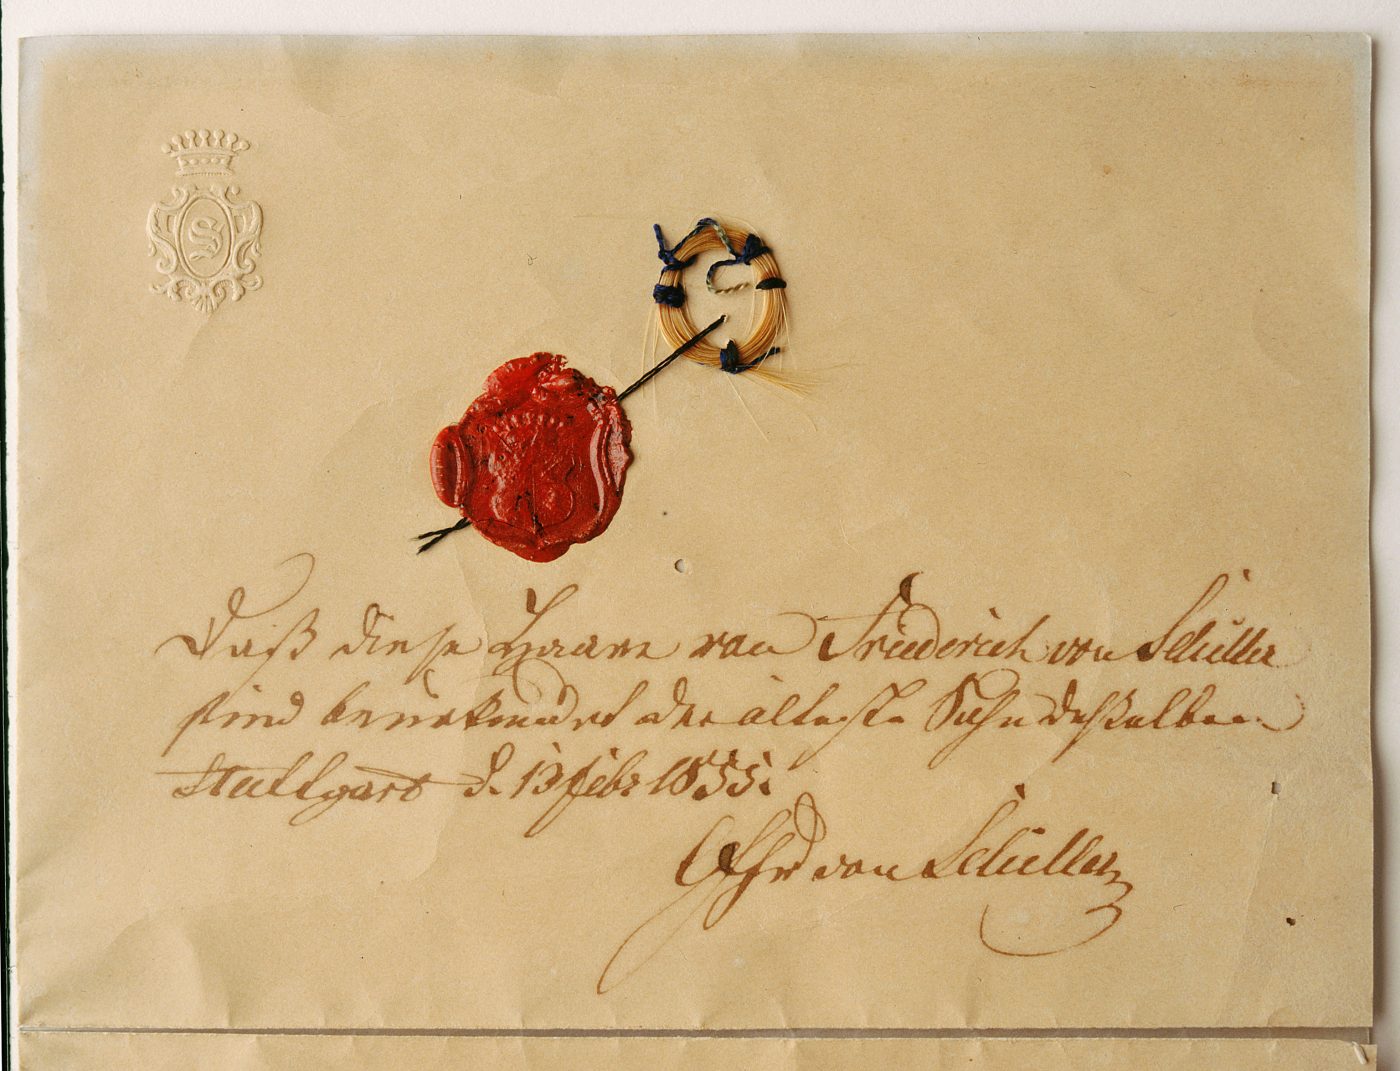 S
Daß diese Haare von Friederich von Schiller
sind beurkundet der älteste Sohn desselben
Stuttgard d. 13 Febr 1855.
von Schiller